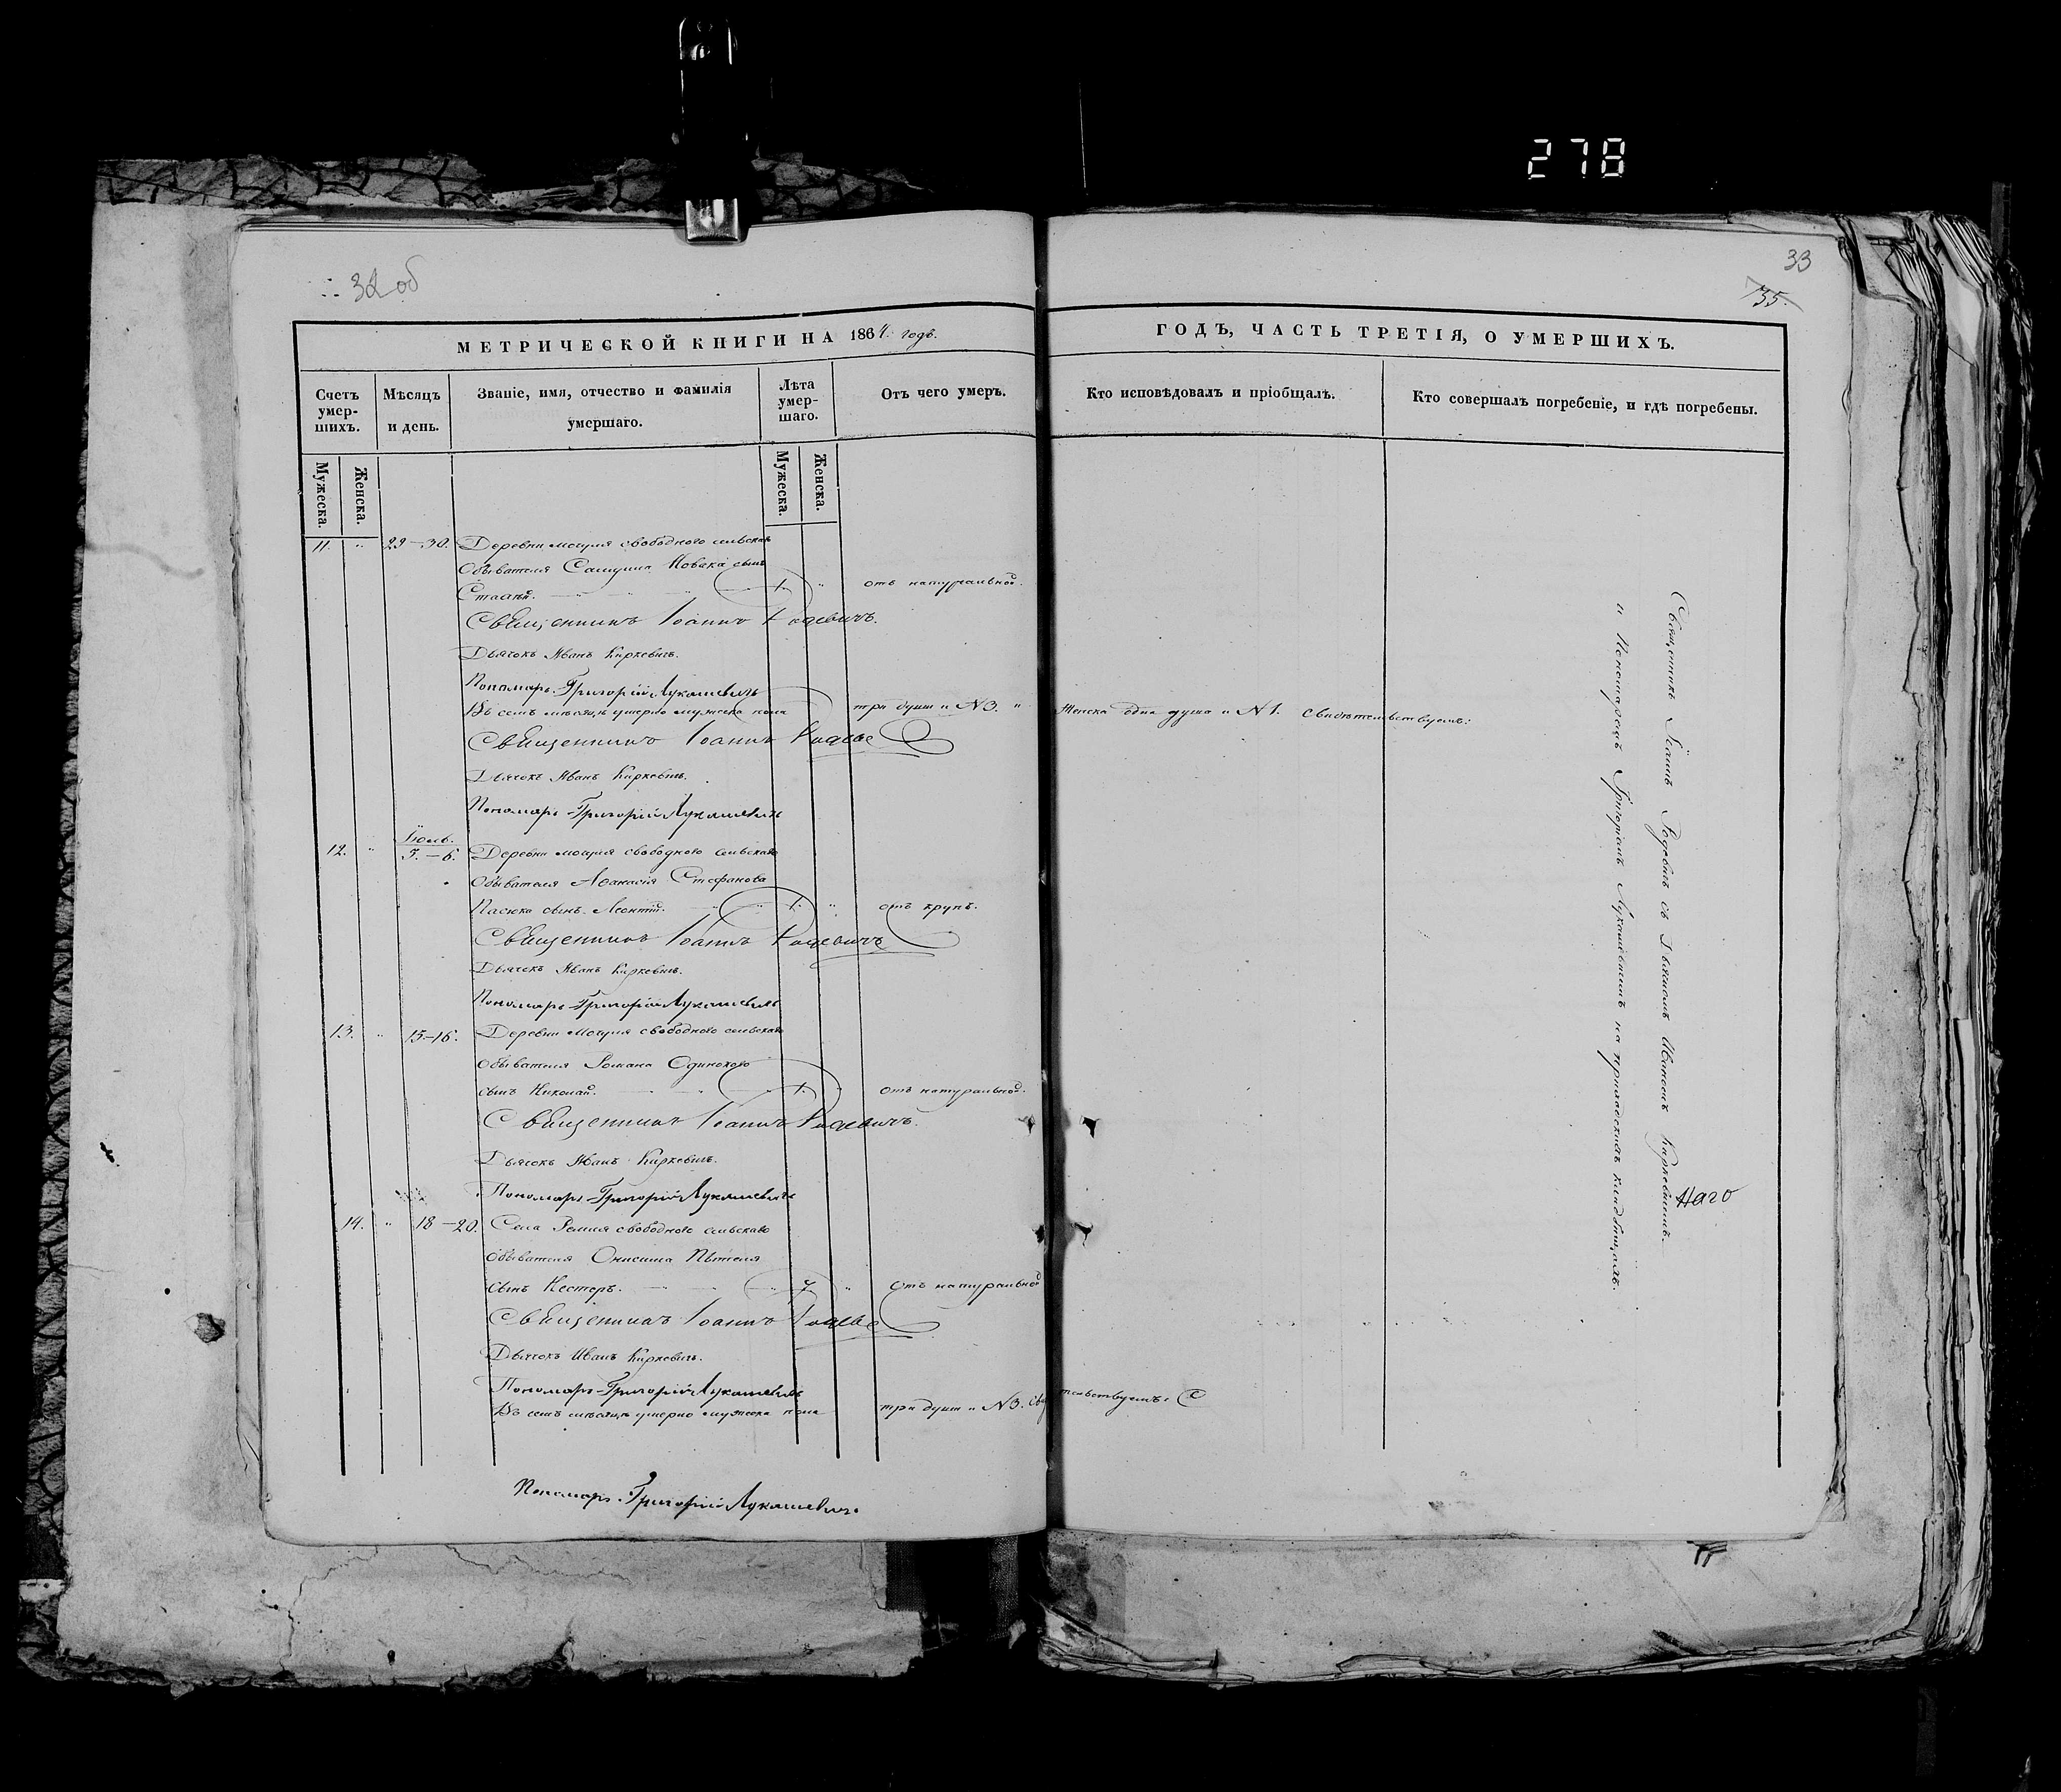 278
32 об
33
35.
МЕТРИЧЕСКОЙ КНИГИ НА 1864. годъ.
ГОДЪ, ЧАСТЬ ТРЕТІЯ, О УМЕРШИХЪ.
Счетъ умер-шихъ.
Мѣсяцъ и день.
Званіе, имя, отчество и фамилія умершаго.
Лѣта умер-шаго.
Отъ чего умеръ.
Кто исповѣдовалъ и пріобщалъ.
Кто совершалъ погребеніе, и гдѣ погребены.
Мужеска.
Женска.
Мужеска.
Женска.
11. " 29-30. Деревни свободного сельскаго
Обывателя Новака сынъ
1. " отъ натуральной.
Священникъ Іоаннъ Родевичъ.
Дьячокъ Иванъ Киркевичъ.
Пономарь Григорій Лукашевичъ
Въ семъ мѣсяцѣ умерло мужеска пола три души и N 3. " Женска одна душа и N 1. Свидѣтельствуемъ:
Священникъ Іоаннъ Родевичъ
Дьячокъ Иванъ Киркевичъ.
Пономарь Григорій Лукашевичъ
Іюль.
12. " 5.-6. Деревни свободного сельскаго
Обывателя Аѳанасія Стефанова
Пасюка сынъ Леонтій. 1. " отъ крупъ.
Священникъ Іоаннъ Родевичъ
Дьячокъ Иванъ Киркевичъ.
Пономарь Григорій Лукашевичъ
13. " 15-16. Деревни свободного сельскаго
Обывателя Романа Одинокого
сынъ Николай. 1. " отъ натуральной.
Священникъ Іоаннъ Родевичъ.
Дьячокъ Иванъ Киркевичъ.
Пономарь Григорій Лукашевичъ
14. " 18-20. Села Ремля свободного сельскаго
Обывателя Онисима
сынъ Нестеръ. 7 " отъ натуральной
Священникъ Іоаннъ Родевичъ
Дьячокъ Иванъ Киркевичъ.
Пономарь Григорій Лукашевичъ
Въ семъ мѣсяцѣ умерло мужеска пола три души и N 3. Свидѣтельствуемъ: С
Пономарь Григорій Лукашевичъ.
Священникъ Іоаннъ Родевичъ съ Дьячкомъ Иваномъ Киркевичемъ.
и Пономаремъ Григоріемъ Лукашевичемъ на приходскихъ кладбищахъ.